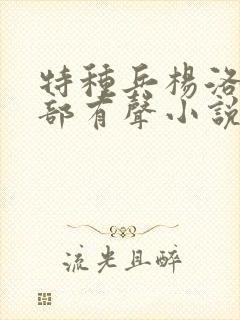 特種兵楊洛
部有聲小說
流光且醉